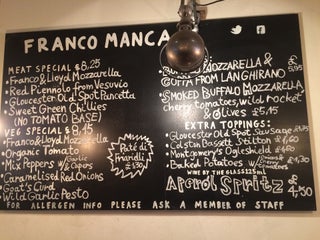 FRANCO MANCA
MEAT SPECIAL £8,25
Franco & Lloyd Mozzarella
Red Piennolo from Vesuvio
Gloucester Old Spot Pancetta
Sweet Green Chillies
(NO TOMATO BASE)
VEG SPECIAL £8,15
Franco & Lloyd Mozzarella
Organic Tomato
Mix Peppers w/ Garlic & Capers
Caramelised Red Onions
Goat's Curd
Wild Garlic Pesto
Paté di
£1,30
MOZZARELLA &
COPPA FROM LANGHIRANO
5,95
SMOKED BUFFALO MOZZARELLA
cherry tomatoes, wild rocket
& Olives £5,15
EXTRA TOPPINGS:
Gloucester Old Spot Sausage
Colston Bassett Stilton £1,60
Montgomery's Ogleshield £1,60
Baked Potatoes w/ Onions & Cherry Tomatoes £1,30
WINE BY THE GLASS 125ml
Aperol Spritz £4,50
FOR ALLERGEN INFO PLEASE ASK A MEMBER OF STAFF